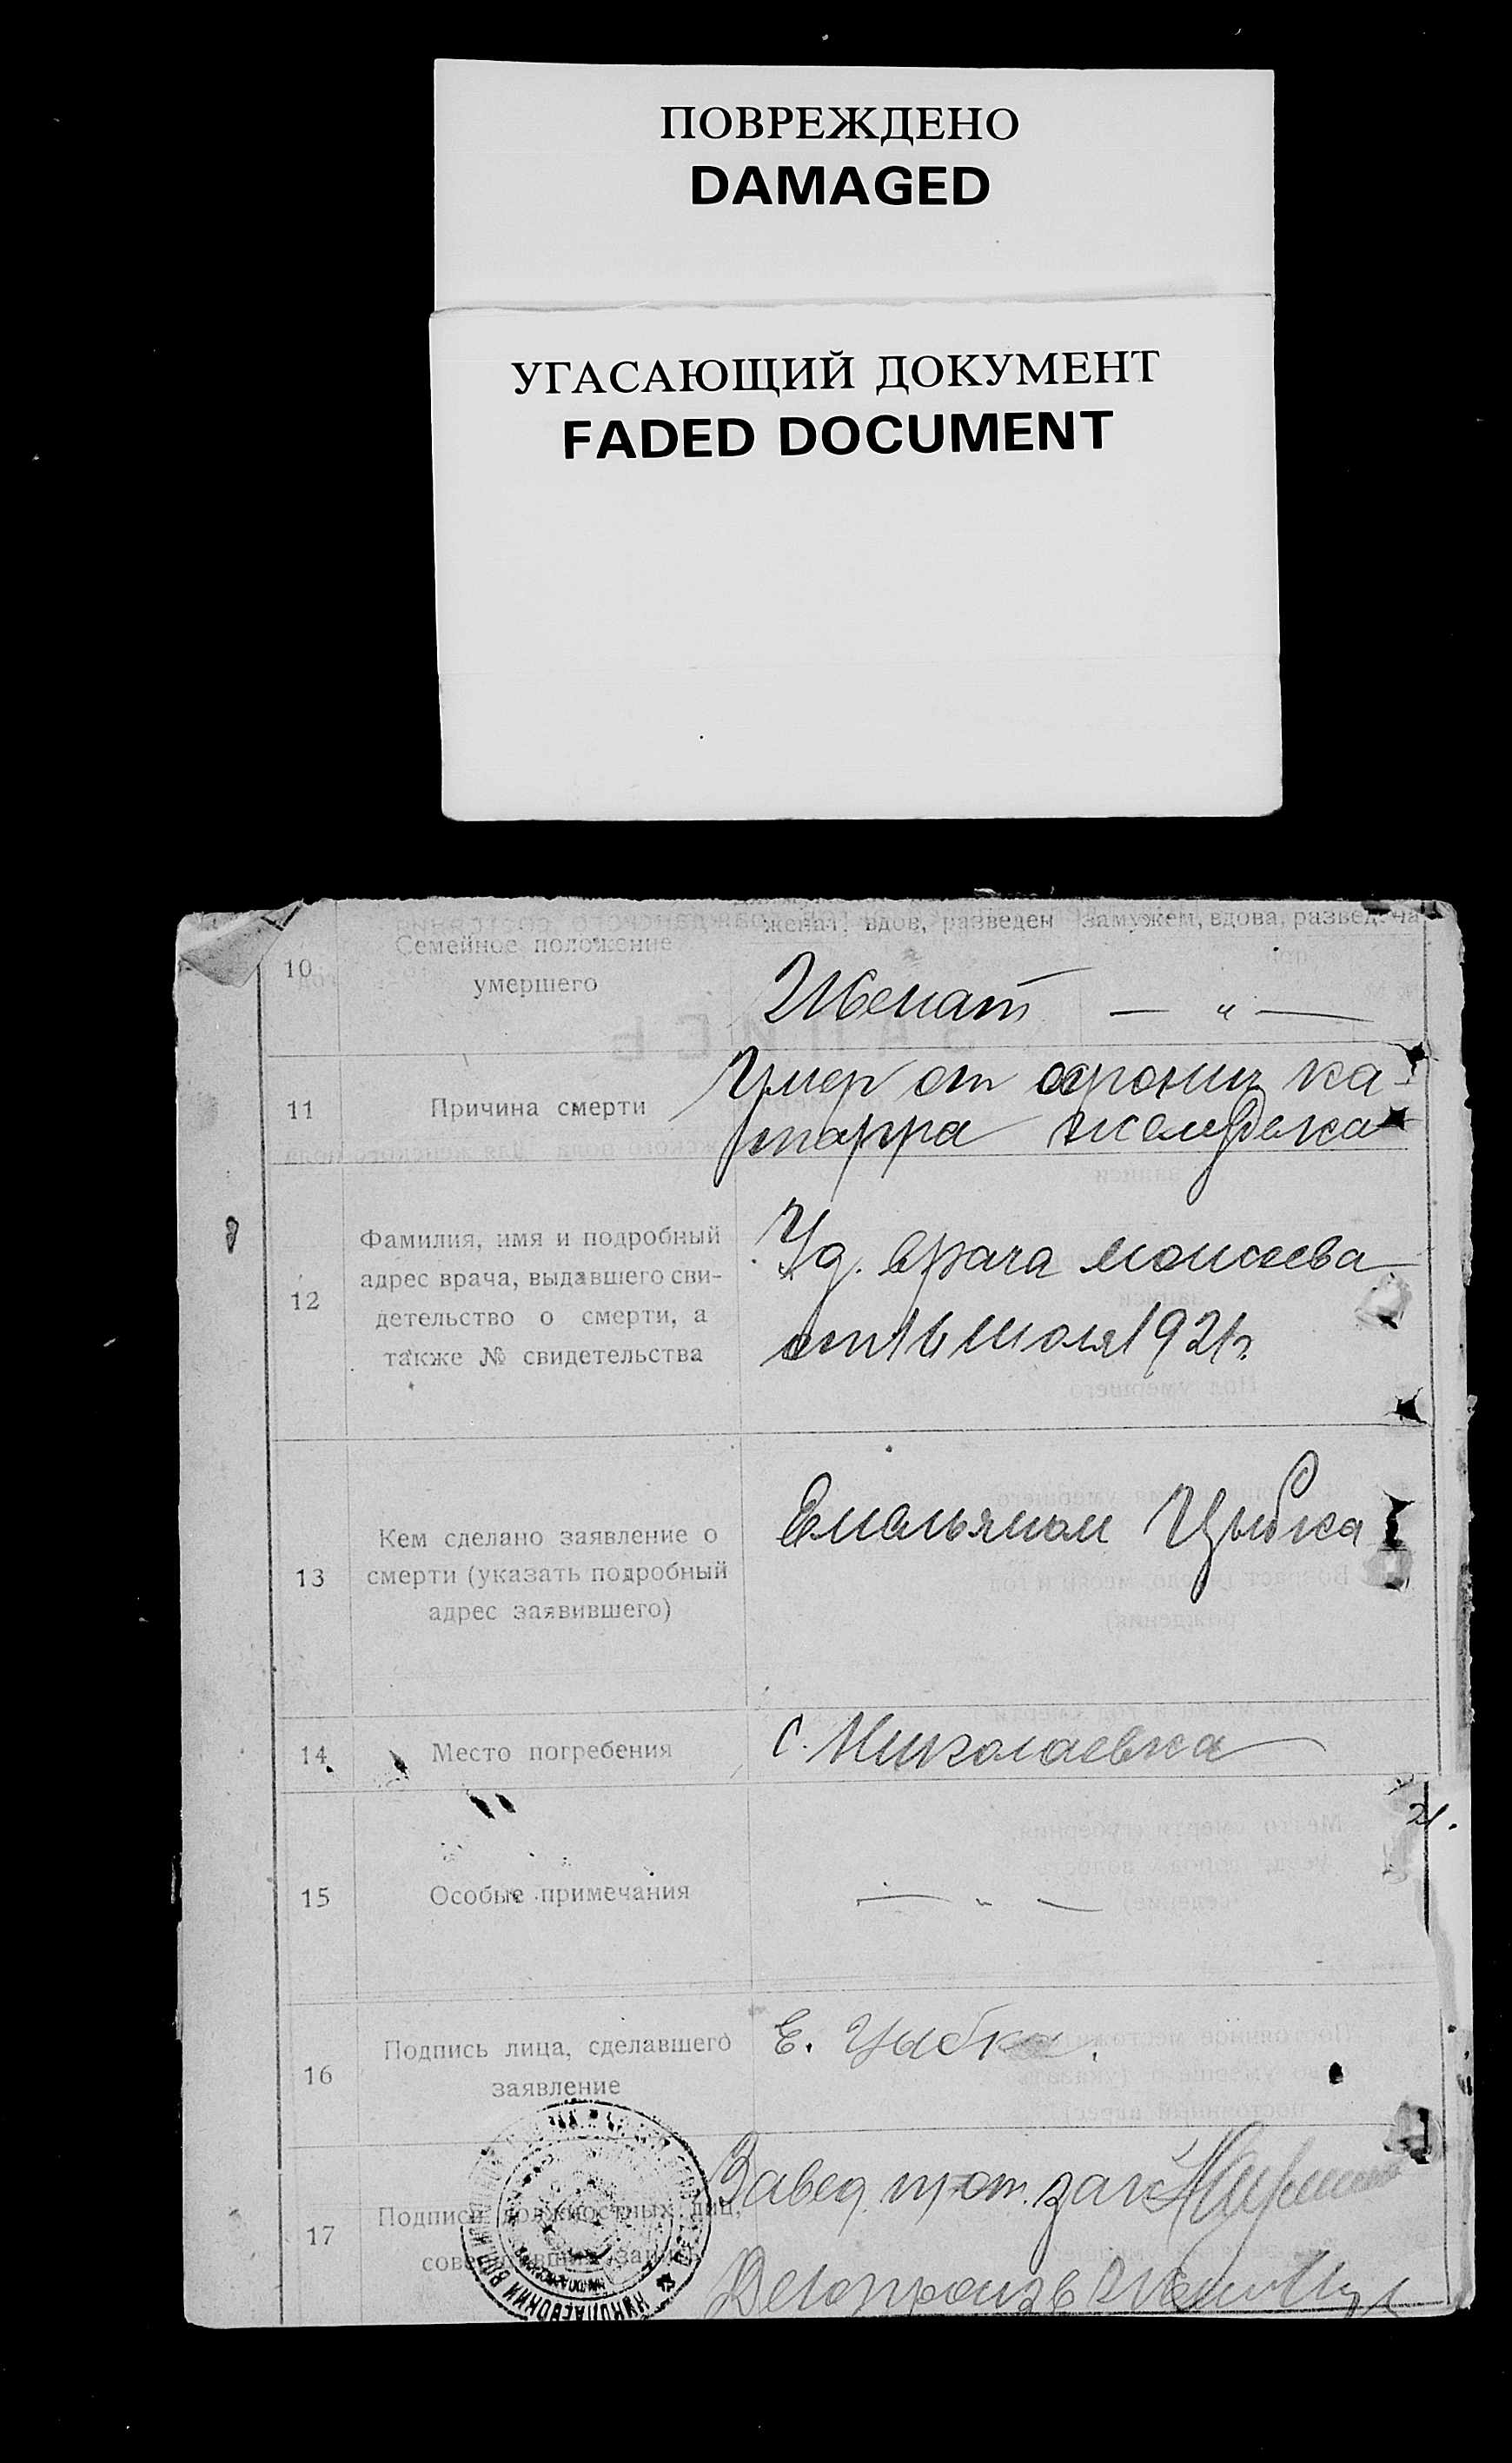 ПОВРЕЖДЕНО
DAMAGED
УГАСАЮЩИЙ ДОКУМЕНТ
FADED DOCUMENT
женат, вдов, разведен замужем, вдова, разведена
10 Семейное положение
умершего
Женат — „ —
11 Причина смерти
Умер от хрониз ка-
тарра желудка
12 Фамилия, имя и подробный
адрес врача, выдавшего сви-
детельство о смерти, а
также № свидетельства
Уд. врача
от 16 июля 1921 г.
13 Кем сделано заявление о
смерти (указать подробный
адрес заявившего)
Емельяном Цыбка
14 Место погребения
с. Николаевка
21.
15 Особые примечания
— „ —
16 Подпись лица, сделавшего
заявление
Е. Цыбка.
17 Подписи должностных лиц,
совершивших запись
Завед.
Делопроизв